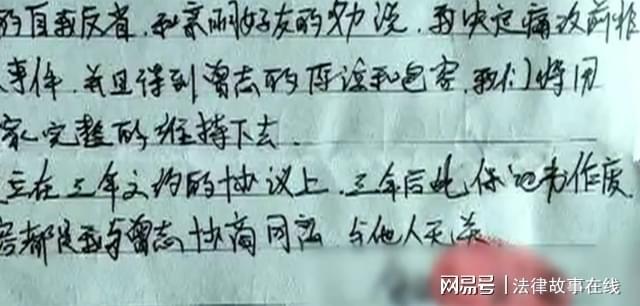 的自我反省，和亲朋好友的劝说，我决定痛改前非
事件，并且得到曾志的原谅和包容，我们将用
家完整的维持下去．
立在三年之约的协议上，三年后此保证书作废
容都是我与曾志协商同议 与他人无关
网易号 | 法律故事在线